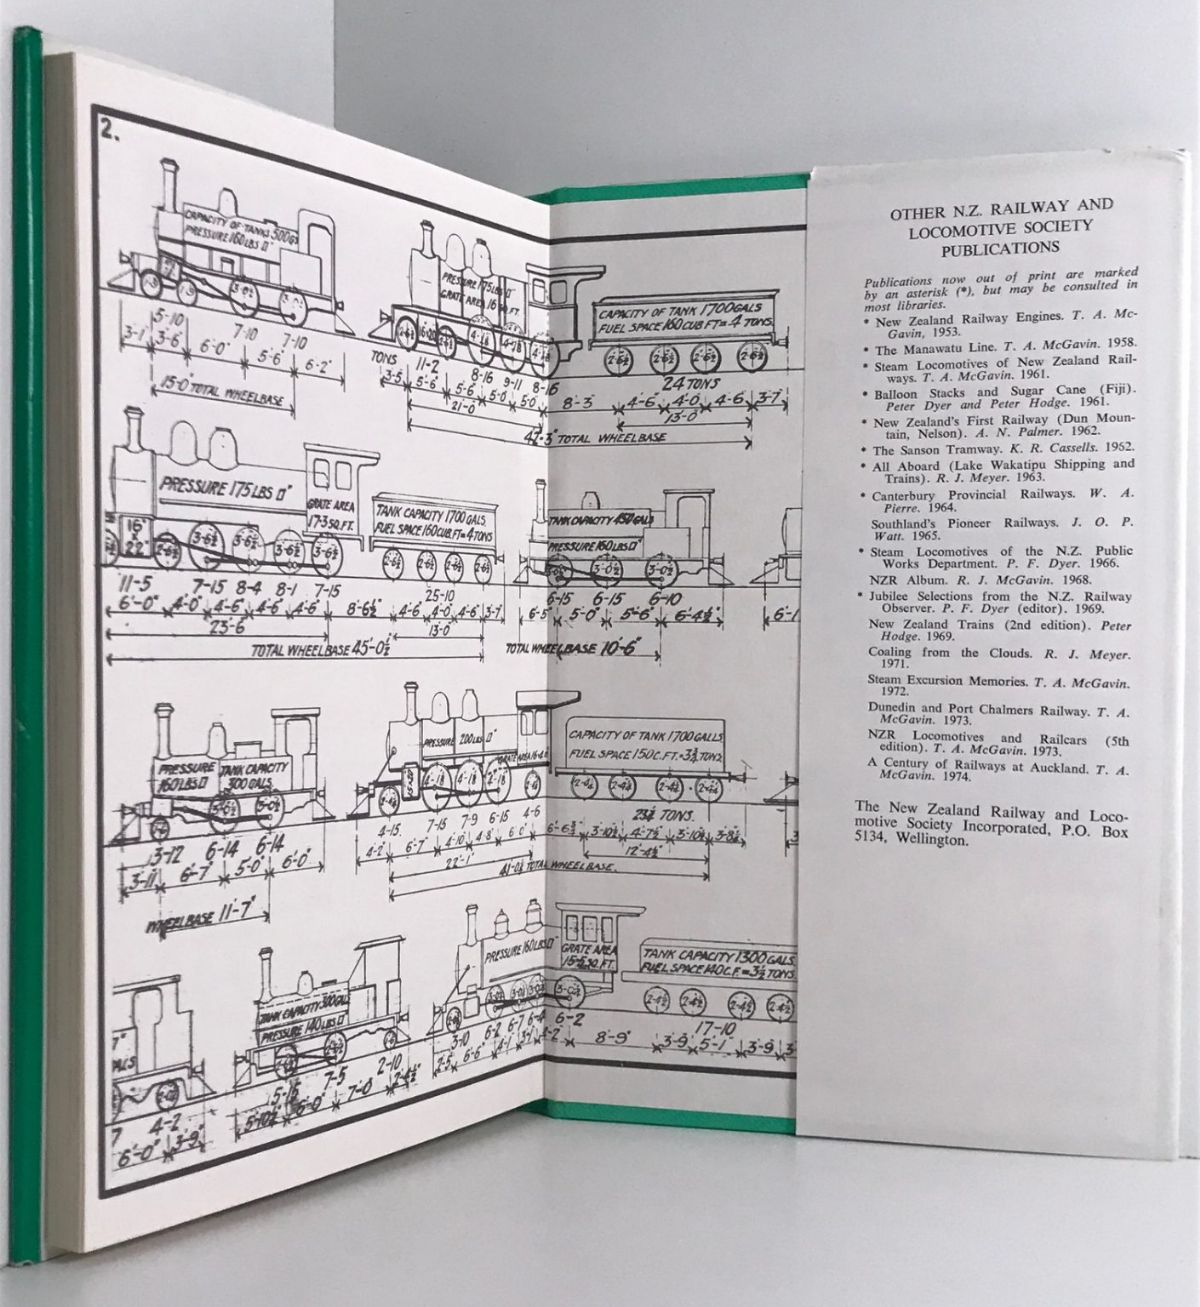 2.
CAPACITY OF TANKS 500GS
PRESSURE 160 LBS □"
3-0½ 3-0½
5-10 7-10 7-10
3-1" 3-6" 6'-0" 5'-6" 6'-2"
15'-0" TOTAL WHEELBASE
PRESSURE 175 LBS □"
GRATE AREA 16 SQ.FT.
CAPACITY OF TANK 1700 GALS
FUEL SPACE 160 CUB FT = 4 TONS
2-6½ 2-6½ 2-6½ 2-6½
TONS 11-2 8-16 9-11 8-16
24 TONS
3-5 5'-6" 5-6 5-0 5-0 8'-3" 4-6 4-0 4-6 3-7
21'-0" 13-0"
47'-3" TOTAL WHEELBASE
PRESSURE 175 LBS □"
GRATE AREA
17·3 SQ.FT.
TANK CAPACITY 1700 GALS
FUEL SPACE 160 CUB.FT = 4 TONS
16"
x
22"
2-6½ 3-6½ 3-6½ 3-6½ 3-6½ 2-6½ 2-6½ 2-6½ 2-6½
11-5 7-15 8-4 8-1 7-15 25-10
6'-0" 4'-0" 4'-6" 4'-6" 4'-6" 8'-6½" 4-6 4-0 4-6 3-7
23'-6" 13'-0"
TOTAL WHEELBASE 45'-0½"
TANK CAPACITY 450 GALS
PRESSURE 160 LBS □"
3-0½ 3-0½ 3-0½
6-15 6-15 6-10
6-5" 5'-0" 5'-6" 6'-4½" 6'-1
TOTAL WHEELBASE 10'-6"
PRESSURE
160 LBS □"
TANK CAPACITY
300 GALS
3-0½ 3-0½
3-12 6-14 6-14
3'-11" 6'-7" 5'-0" 6'-0"
WHEELBASE 11'-7"
PRESSURE 200 LBS □"
CAPACITY OF TANK 1700 GALLS
FUEL SPACE 150 C.FT. = 3¾ TONS
4-15 7-15 7-9 6-15 4-6 23½ TONS.
4-2" 6'-7" 4-10 4-8 6'0" 6'-6¾" 3-10½ 4'-7½ 3'-10½ 3'-8½
22'-1" 12'-4½"
41'-0¼ TOTAL WHEELBASE.
7"
ALS
7 4-2
6'-0" 3'-9"
TANK CAPACITY 300 GALS
PRESSURE 140 LBS □"
5-15 7-5 2-10
5'-10½ 6'-0" 7'-0" 2'-4½"
PRESSURE 160 LBS □"
GRATE AREA
15·5 SQ.FT.
TANK CAPACITY 1300 GALS
FUEL SPACE 140 C.F. = 3½ TONS
2-4½ 2-4½ 2-4½ 2-4½
3-10 6-2 6-7 6-4 6-2 17-10
6'-6" 4-1 8'-9" 3'-9 5'-1" 3'-9 3
OTHER N.Z. RAILWAY AND
LOCOMOTIVE SOCIETY
PUBLICATIONS
Publications now out of print are marked
by an asterisk (*), but may be consulted in
most libraries.
* New Zealand Railway Engines. T. A. Mc-
Gavin, 1953.
* The Manawatu Line. T. A. McGavin. 1958.
* Steam Locomotives of New Zealand Rail-
ways. T. A. McGavin. 1961.
* Balloon Stacks and Sugar Cane (Fiji).
Peter Dyer and Peter Hodge. 1961.
* New Zealand's First Railway (Dun Moun-
tain, Nelson). A. N. Palmer. 1962.
* The Sanson Tramway. K. R. Cassells. 1962.
* All Aboard (Lake Wakatipu Shipping and
Trains). R. J. Meyer. 1963.
* Canterbury Provincial Railways. W. A.
Pierre. 1964.
Southland's Pioneer Railways. J. O. P.
Watt. 1965.
* Steam Locomotives of the N.Z. Public
Works Department. P. F. Dyer. 1966.
NZR Album. R. J. McGavin. 1968.
* Jubilee Selections from the N.Z. Railway
Observer. P. F. Dyer (editor). 1969.
New Zealand Trains (2nd edition). Peter
Hodge. 1969.
Coaling from the Clouds. R. J. Meyer.
1971.
Steam Excursion Memories. T. A. McGavin.
1972.
Dunedin and Port Chalmers Railway. T. A.
McGavin. 1973.
NZR Locomotives and Railcars (5th
edition). T. A. McGavin. 1973.
A Century of Railways at Auckland. T. A.
McGavin. 1974.
The New Zealand Railway and Loco-
motive Society Incorporated, P.O. Box
5134, Wellington.